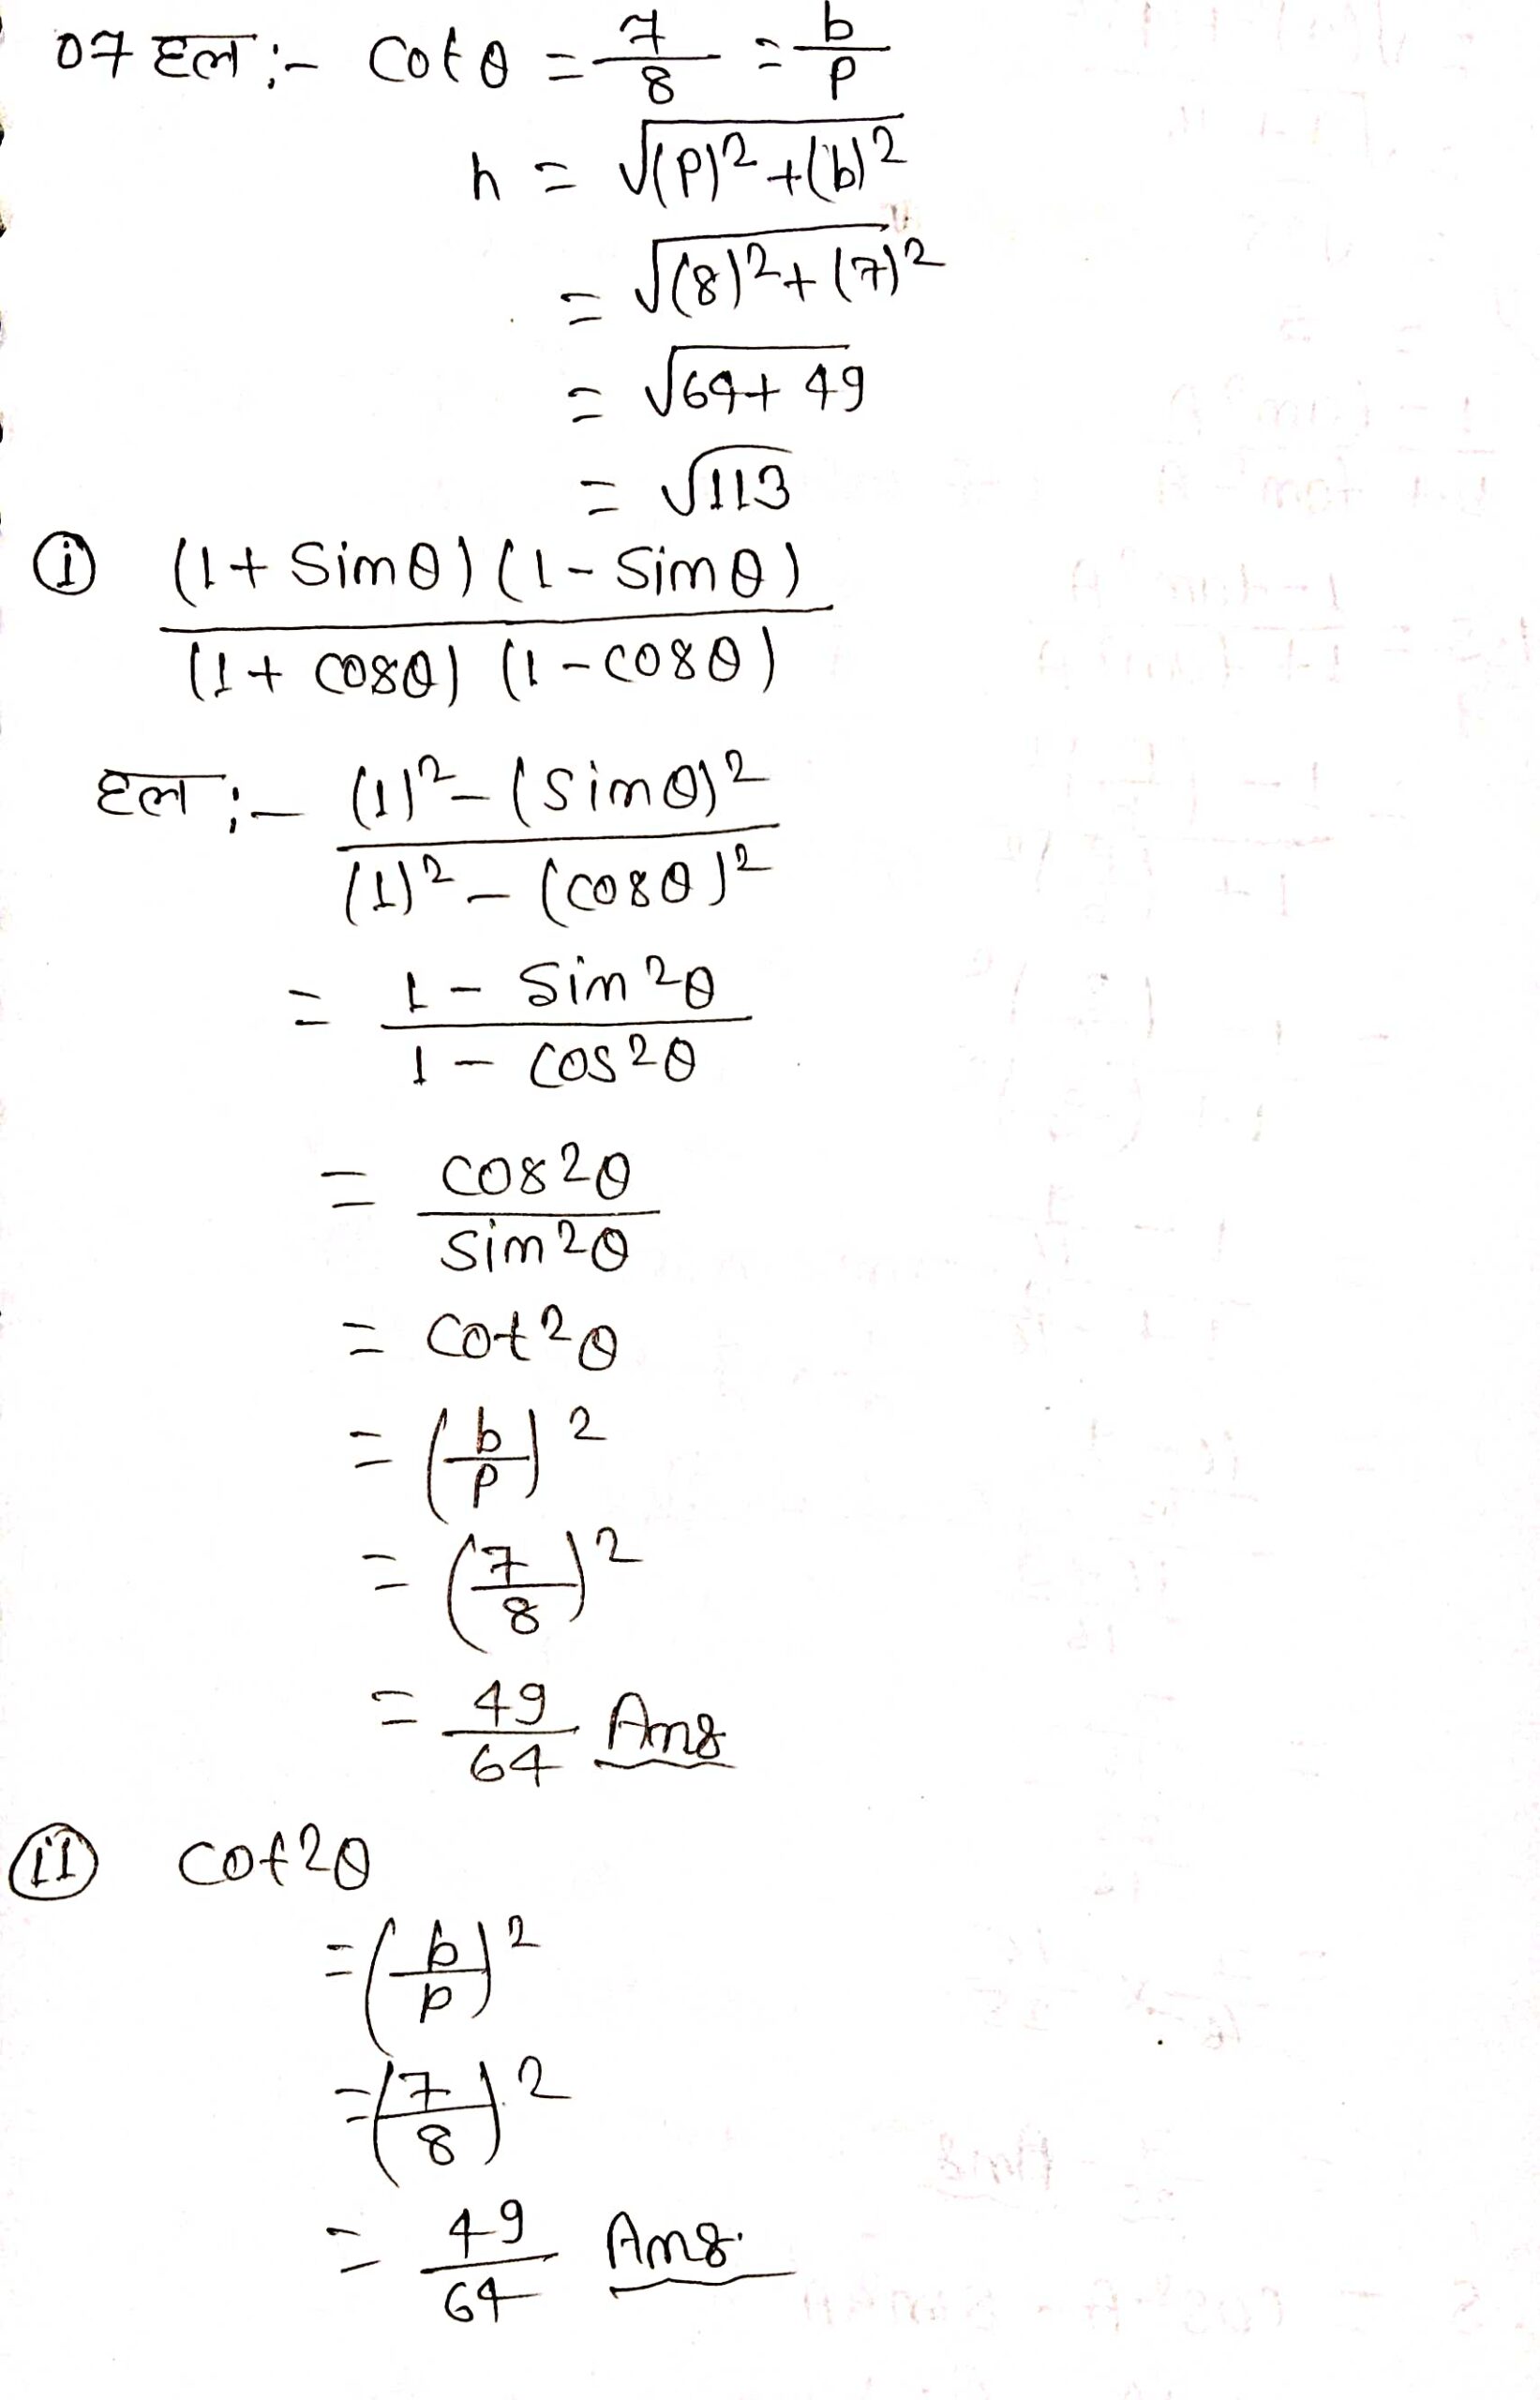 07 हल:- Cotθ = 7/8 = b/p
h = √(P)² + (b)²
= √(8)² + (7)²
= √64 + 49
= √113
(i) (1 + Sinθ) (1 - Sinθ)
(1 + cosθ) (1 - cosθ)
हल:- (1)² - (Sinθ)²
(1)² - (cosθ)²
= 1 - Sin²θ
1 - Cos²θ
= cos²θ
sin²θ
= cot²θ
= (b/p)²
= (7/8)²
= 49/64 Ans
(ii) cot²θ
= (b/p)²
= (7/8)²
= 49/64 Ans.